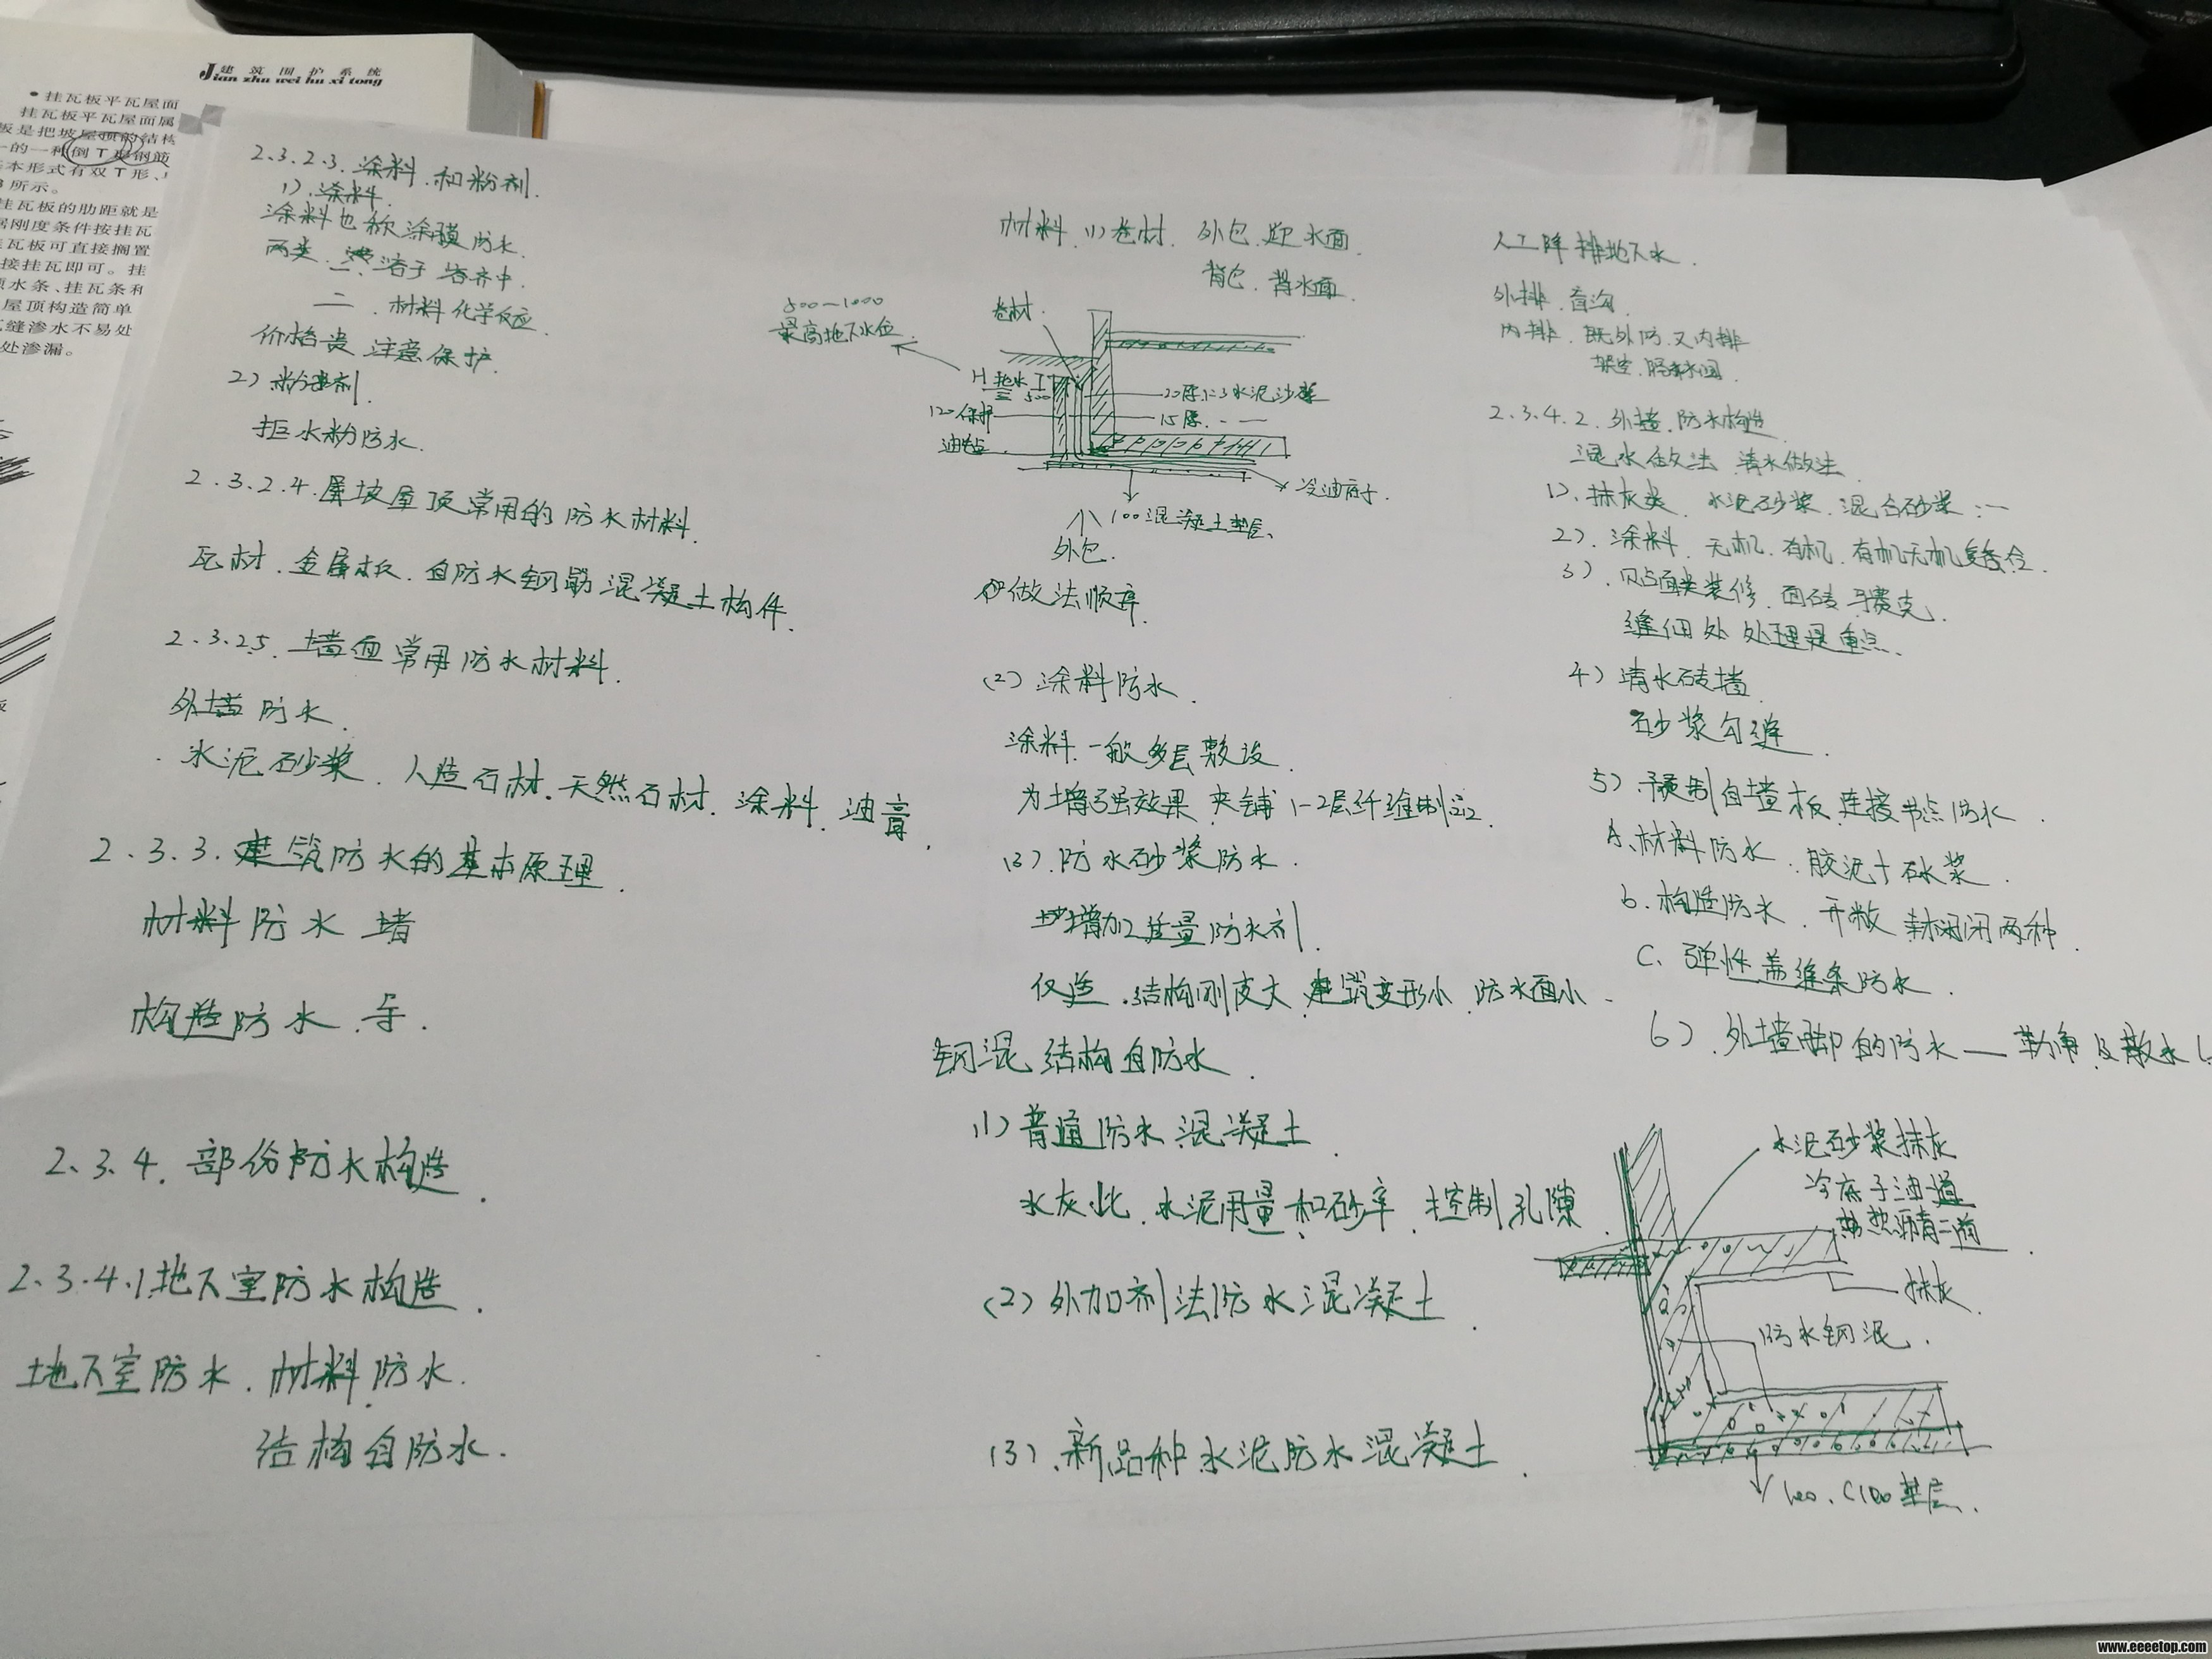 建筑围护系统
Jian zhu wei hu xi tong
• 挂瓦板平瓦屋面
挂瓦板平瓦屋面属
板是把坡屋顶的结构
的一种倒T形钢筋
本形式有双T形、
所示。
挂瓦板的肋距就是
刚度条件按挂瓦
瓦板可直接搁置
接挂瓦即可。挂
水条、挂瓦条和
屋顶构造简单
缝渗水不易处
处渗漏。
2.3.2.3.涂料.和粉剂.
1).涂料.
涂料也称涂膜防水.
两类.一.溶于溶齐中.
二.材料化学反应.
价格贵.注意保护.
2)粉剂.
拒水粉防水.
2.3.2.4.坡屋顶常用的防水材料.
瓦材.金属板.自防水钢筋混凝土构件.
2.3.25.墙面常用防水材料.
外墙防水.
水泥砂浆.人造石材.天然石材.涂料.油膏.
2.3.3.建筑防水的基本原理.
材料防水 堵
构造防水.导.
2.3.4.部份防水构造.
2.3.4.1.地下室防水构造.
地下室防水.材料防水.
结构自防水.
材料.(1)卷材.外包.迎水面.
背包.背水面.
500~1000
最高地下水位.
卷材.
H 地水
500
20厚1:3水泥沙浆
120保护
15厚.- —
油毡
冷油底子.
100混凝土垫层.
外包.
做法顺序.
(2)涂料防水.
涂料.一般多层敷设.
为增强效果.夹铺1-2层纤维制品.
(3).防水砂浆防水.
增加适量防水剂.
仅适.结构刚度大.建筑变形小.防水面小.
钢混结构自防水.
(1)普通防水混凝土.
水灰比.水泥用量和砂率.控制孔隙.
(2)外加剂法防水混凝土.
(3).新品种水泥防水混凝土.
人工降排地下水.
外排.盲沟.
内排.既外防.又内排
架空.
2.3.4.2.外墙.防水构造.
混水做法 清水做法.
1).抹灰类.水泥砂浆.混合砂浆:一
2).涂料.无机.有机.有机无机复合.
3).贴面类装修.面砖马赛克.
缝细处处理是重点.
4)清水砖墙.
砂浆勾缝.
5)预制自墙板.连接节点防水.
A.材料防水.胶泥+砂浆.
b.构造防水.开敞 封闭两种.
C.弹性盖缝条防水.
6).外墙脚的防水—勒角及散水
水泥砂浆抹灰
冷底子油一道
热沥青二道.
抹灰.
防水钢混.
100.C100垫层.
www.eeeetop.com